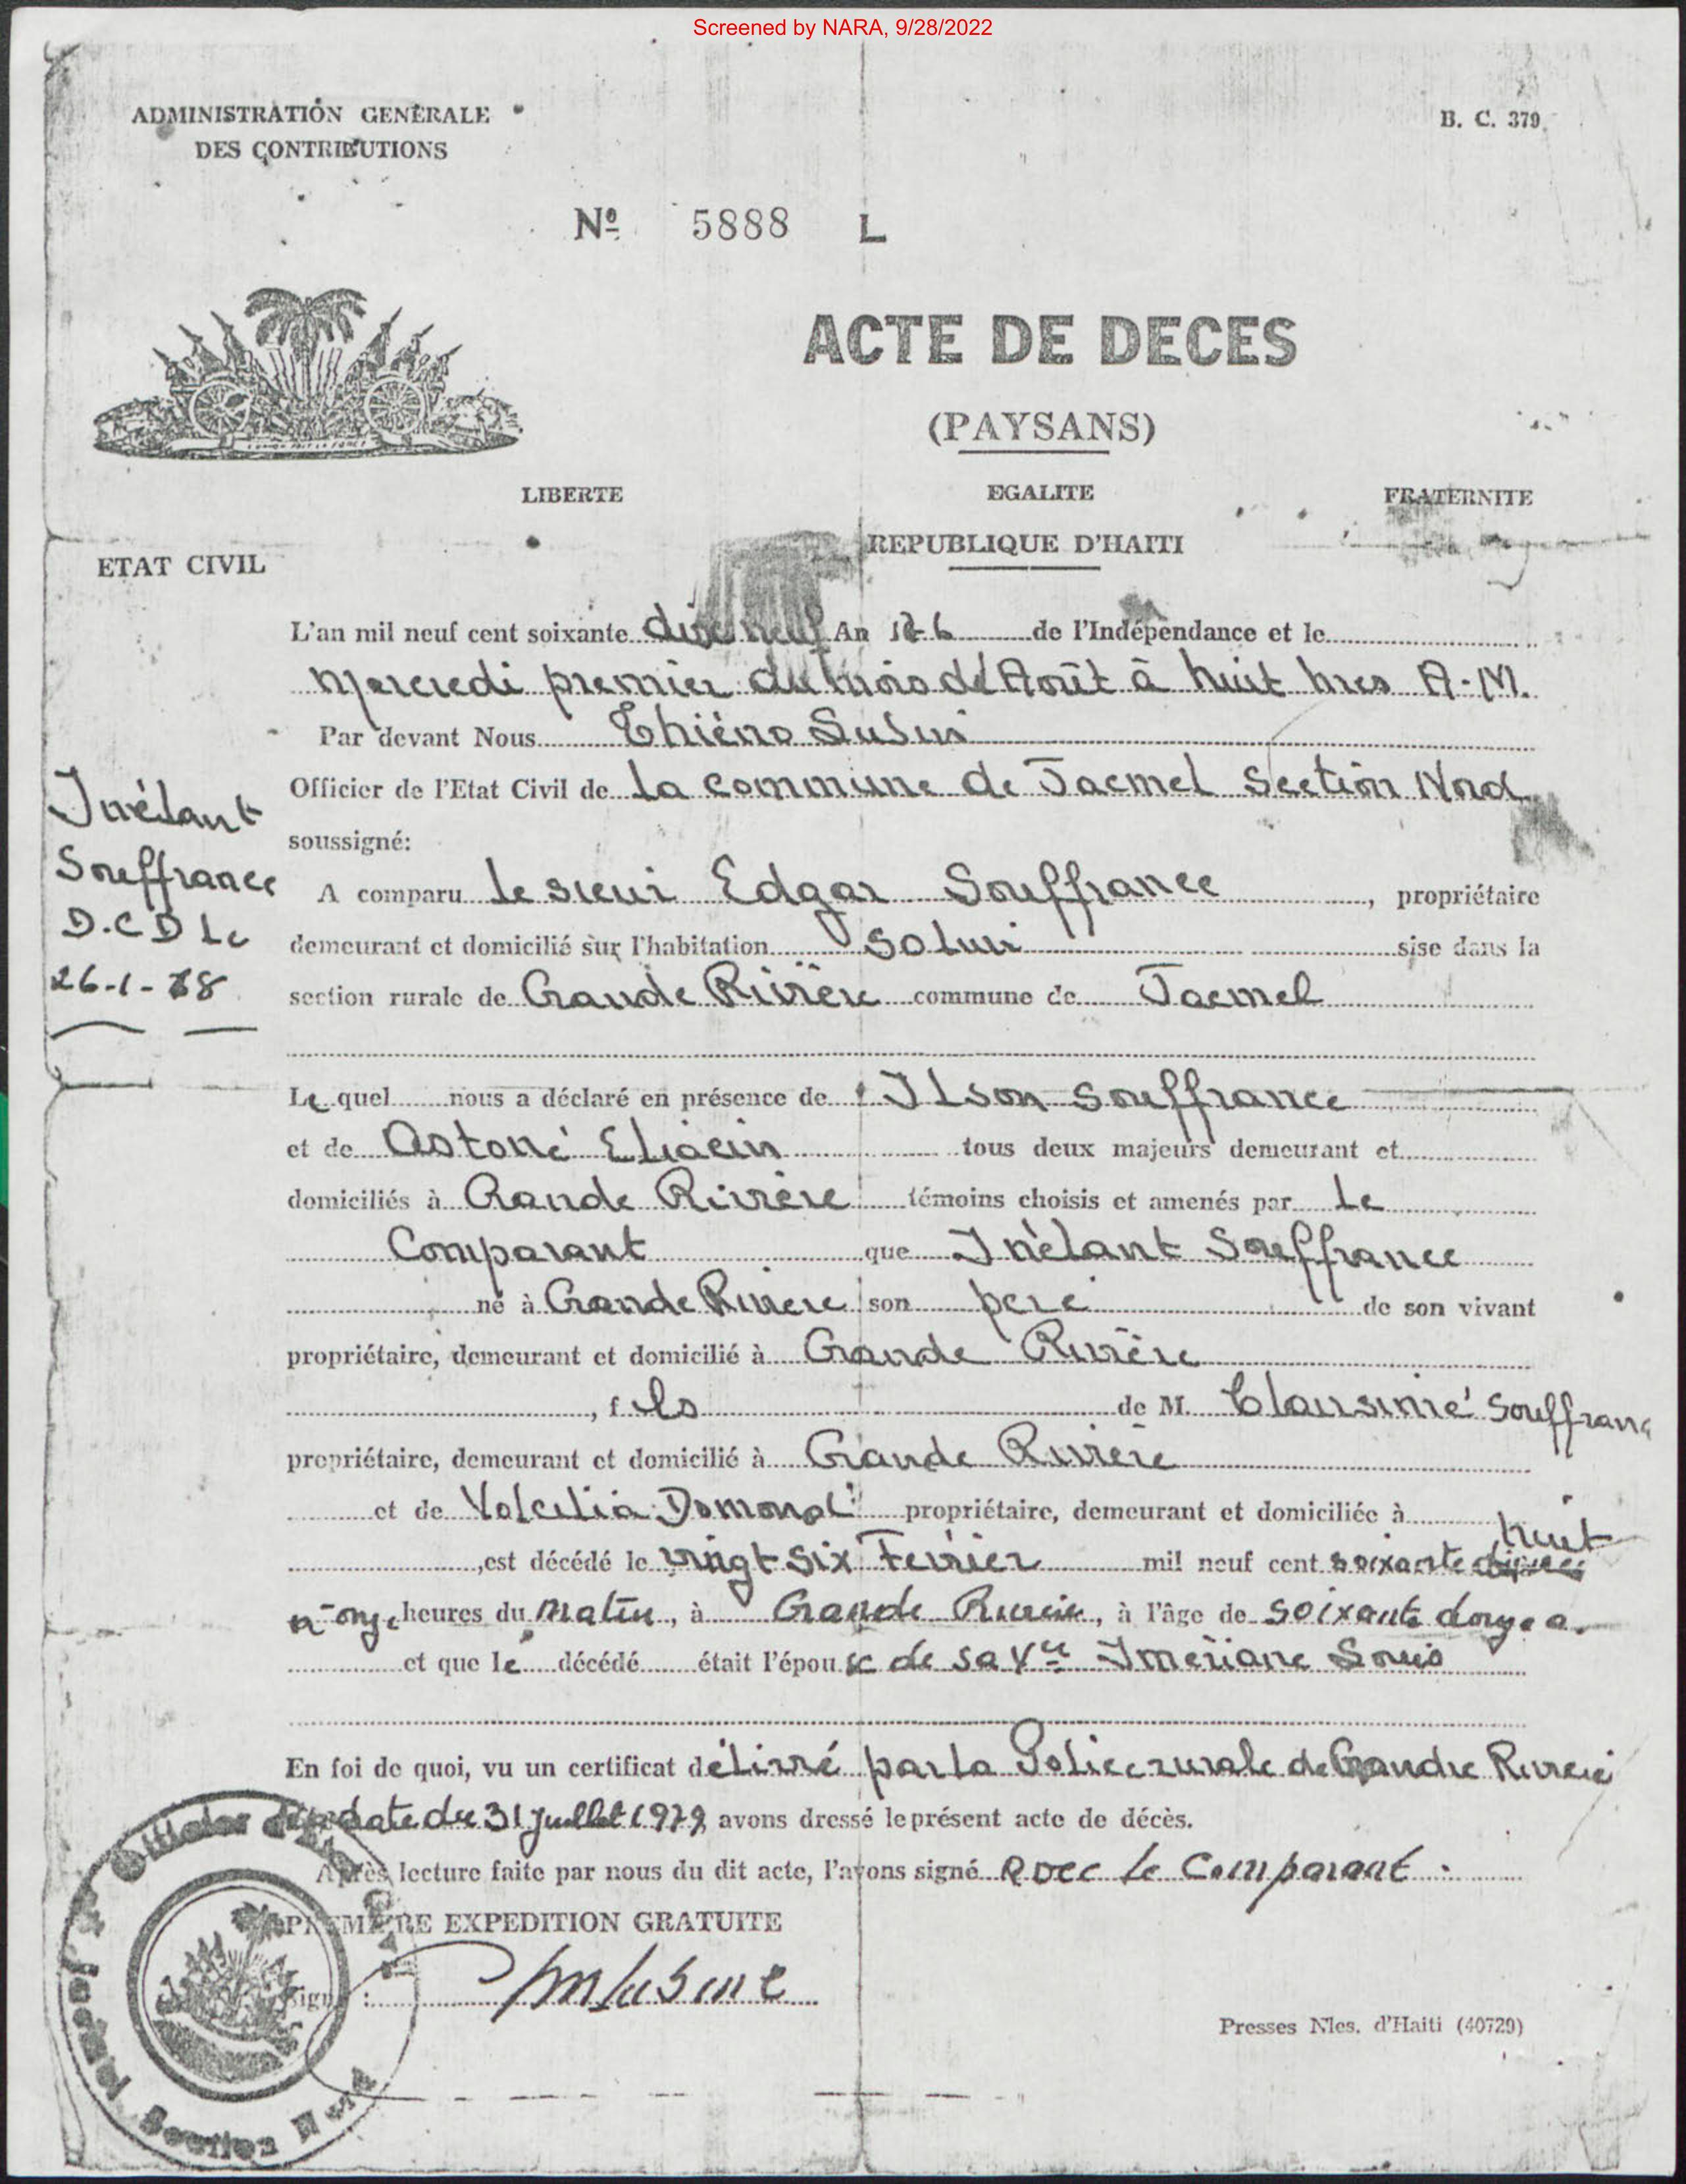 Screened by NARA, 9/28/2022
ADMINISTRATION GENERALE
DES CONTRIBUTIONS
B. C. 379
Nº 5888 L
ACTE DE DECES
(PAYSANS)
LIBERTE EGALITE FRATERNITE
REPUBLIQUE D'HAITI
ETAT CIVIL
L'an mil neuf cent soixante dix neuf An 176 de l'Indépendance et le
Mercredi premier du mois d'Août à huit hres A.M.
Par devant Nous
Officier de l'Etat Civil de la commune de Jacmel Section Nord
soussigné:
Inélant
Souffrance
D.C.D Le
26-1-78
A comparu le sieur Edgar Souffrance, propriétaire
demeurant et domicilié sur l'habitation sise dans la
section rurale de Grande Rivière commune de Jacmel
Le quel nous a déclaré en présence de Ilson Souffrance
et de Astoné Eliacin tous deux majeurs demeurant et
domiciliés à Grande Rivière témoins choisis et amenés par Le
Comparant que Inélant Souffrance
né à Grande Rivière son père de son vivant
propriétaire, demeurant et domicilié à Grande Rivière
, fils de M. Souffrance
propriétaire, demeurant et domicilié à Grande Rivière
et de Domond propriétaire, demeurant et domiciliée à
, est décédé le vingt six Fevrier mil neuf cent soixante huit
à onze heures du Matin, à Grande Rivière, à l'âge de soixante douze a.
et que le décédé était l'époux de sa Vve Imériane
En foi de quoi, vu un certificat délivré par la Police rurale de Grande Riviere
en date du 31 Juillet 1979 avons dressé le présent acte de décès.
Après lecture faite par nous du dit acte, l'avons signé avec le Comparant.
PREMIERE EXPEDITION GRATUITE
Signé :
Presses Nles. d'Haiti (40729)